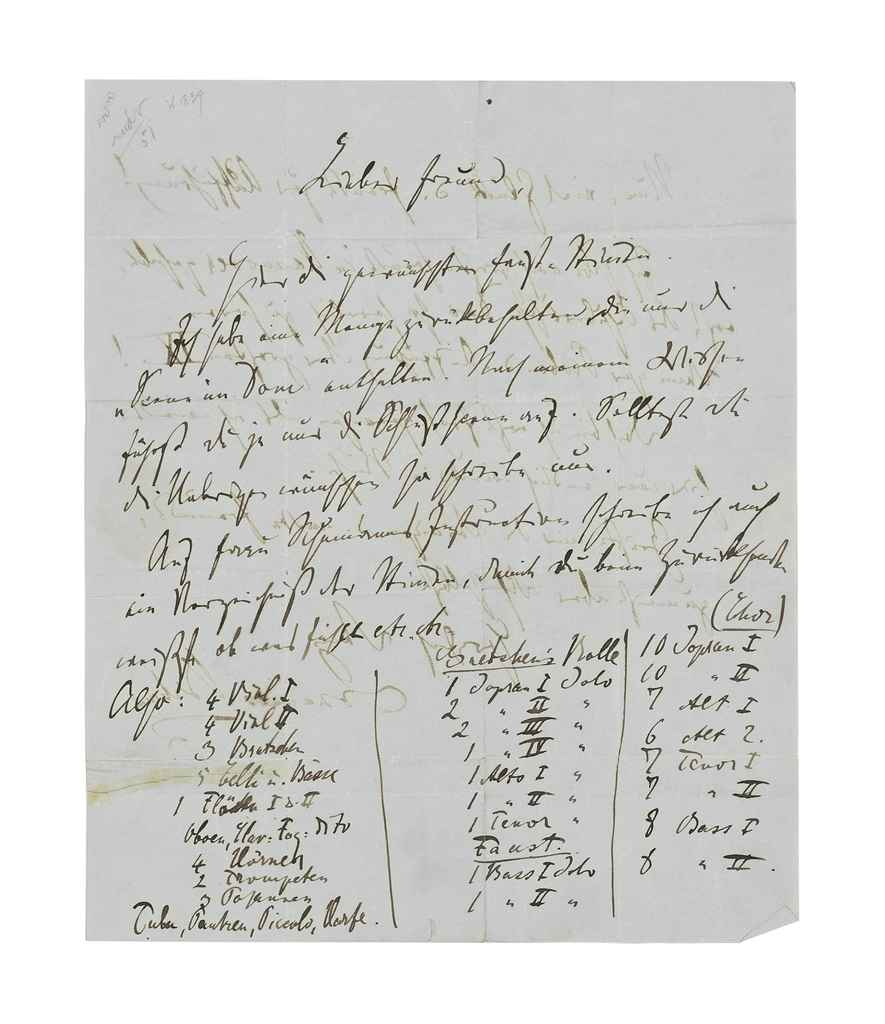 Lieber Freund,
Hier die gewünschten Faust-Stimmen.
Ich habe eine Menge zurückbehalten, die nur die
„Scene im Dom" enthalten. Nach meinem Wissen
führst du ja nur die Schlußscene auf. Solltest du
die Uebrigen wünschen so schreibe mir.
Auf Frau Schumanns Instruction schreibe ich auch
ein Verzeichniß der Stimmen, damit du beim Zurücksenden
weißt, ob was fehlt etc. etc.
Also: 4 Viol. I
4 Viol II
3 Bratschen
5 Celli u. Bässe
1 Flöten I u. II
Oboen, Clar: Fag: dito
4 Hörner
2 Trompeten
3 Posaunen
Tuba, Pauken, Piccolo, Harfe.
Gretchen's Rolle
1 Sopran I Solo
2 „ II „
2 „ III „
1 „ IV „
1 Alto I „
1 „ II „
1 Tenor „
Faust.
1 Bass I Solo
1 „ II „
(Chor)
10 Sopran I
10 „ II
7 Alt I
6 Alt 2.
7 Tenor I
7 „ II
8 Bass I
8 „ II.